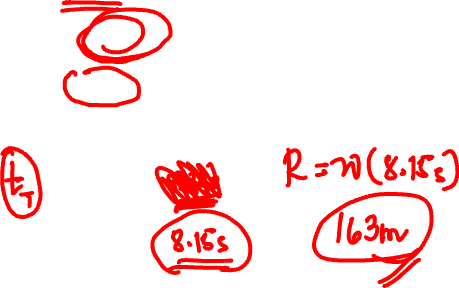 t_T
8.15s
R = 20(8.15s)
163m